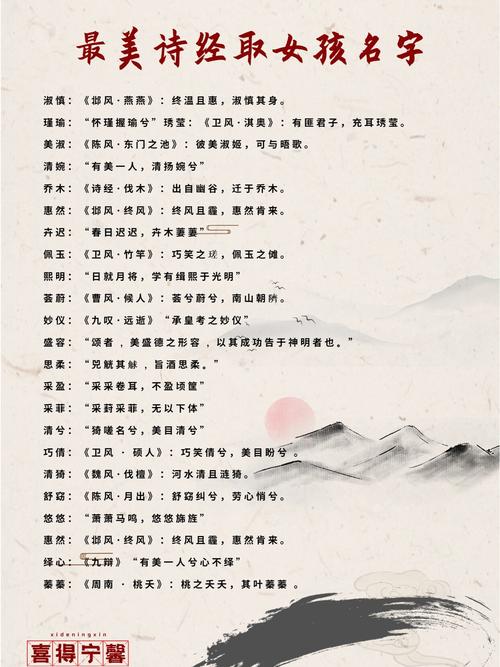 最美诗经取女孩名字
淑慎：《邶风·燕燕》：终温且惠，淑慎其身。
瑾瑜：“怀瑾握瑜兮” 琇莹：《卫风·淇奥》：有匪君子，充耳琇莹。
美淑：《陈风·东门之池》：彼美淑姬，可与晤歌。
清婉：“有美一人，清扬婉兮”
乔木：《诗经·伐木》：出自幽谷，迁于乔木。
惠然：《邶风·终风》：终风且霾，惠然肯来。
卉迟：“春日迟迟，卉木萋萋”
佩玉：《卫风·竹竿》：巧笑之瑳，佩玉之傩。
熙明：“日就月将，学有缉熙于光明”
荟蔚：《曹风·候人》：荟兮蔚兮，南山朝隮。
妙仪：《九叹·远逝》“承皇考之妙仪”
盛容：“颂者，美盛德之形容，以其成功告于神明者也。”
思柔：“兕觥其觩，旨酒思柔。”
采盈：“采采卷耳，不盈顷筐”
采菲：“采葑采菲，无以下体”
清兮：“猗嗟名兮，美目清兮”
巧倩：《卫风 · 硕人》：巧笑倩兮，美目盼兮 。
清猗：《魏风·伐檀》：河水清且涟猗。
舒窈：《陈风·月出》：舒窈纠兮，劳心悄兮。
悠悠：“萧萧马鸣，悠悠旆旌”
惠然：《邶风·终风》：终风且霾，惠然肯来。
绎心：《九辩》“有美一人兮心不绎”
蓁蓁：《周南 · 桃夭》：桃之夭夭，其叶蓁蓁 。
xideningxin
喜得宁馨